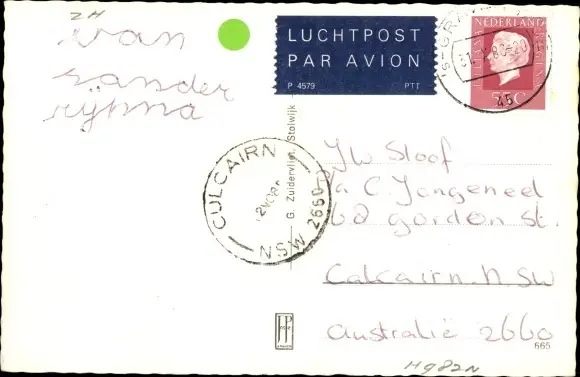 ZH
van
sander
rijkma
LUCHTPOST
PAR AVION
P 4579 PTT
NEDERLAND
55 C
45c
CULCAIRN
NSW 2660
G. Zuidervliet, Stolwijk
JW Sloof
P/a C. Jongeneel
60 gordon st.
Calcairn. N. SW
Australië 2660
665
H982N